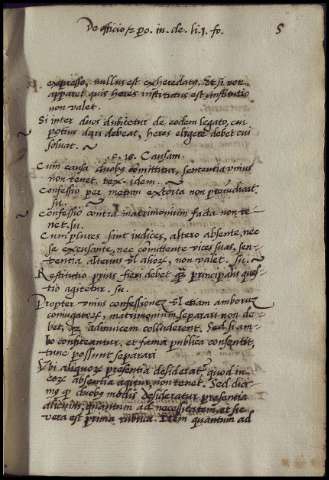 De officio & po. iu. de. li. I. fo. 5
expresso, nullus est exheredatus. Et si non
apparet quis heres institutus est institutio
non valet.
Si inter duos dubitetur de eodem legato, cui
potius dari debeat, heres eligere debet cui
solvat.
c. 16. Causam.
Cum causa duobus committitur, sententia unius
non tenet. tex. idem.
Confessio per metum extorta non preiudicat.
su.
Confessio contra matrimonium facta non te-
net. su.
Cum plures sunt iudices, altero absente, nec
se excusante, nec committente vices suas, sen-
tentia alterius vel alior, non valet. su.
Restitutio prius fieri debet q principalis ques
tio agitetur. su.
Propter unius confessionem vel etiam amborum
coniugatorum, matrimonium separari non de-
bet, adinvicem colluderent. Sed si am-
bo confiteantur, et fama publica consentit,
tunc possunt separari
Ubi aliquorum presentia desideratur quod in
eorum absentia agitur, non tenet. Sed dic
q duobus modis desideratur presentia
alicuius, quantum ad necessitatem, et sic
vera est prima rubrica. Item quantum ad